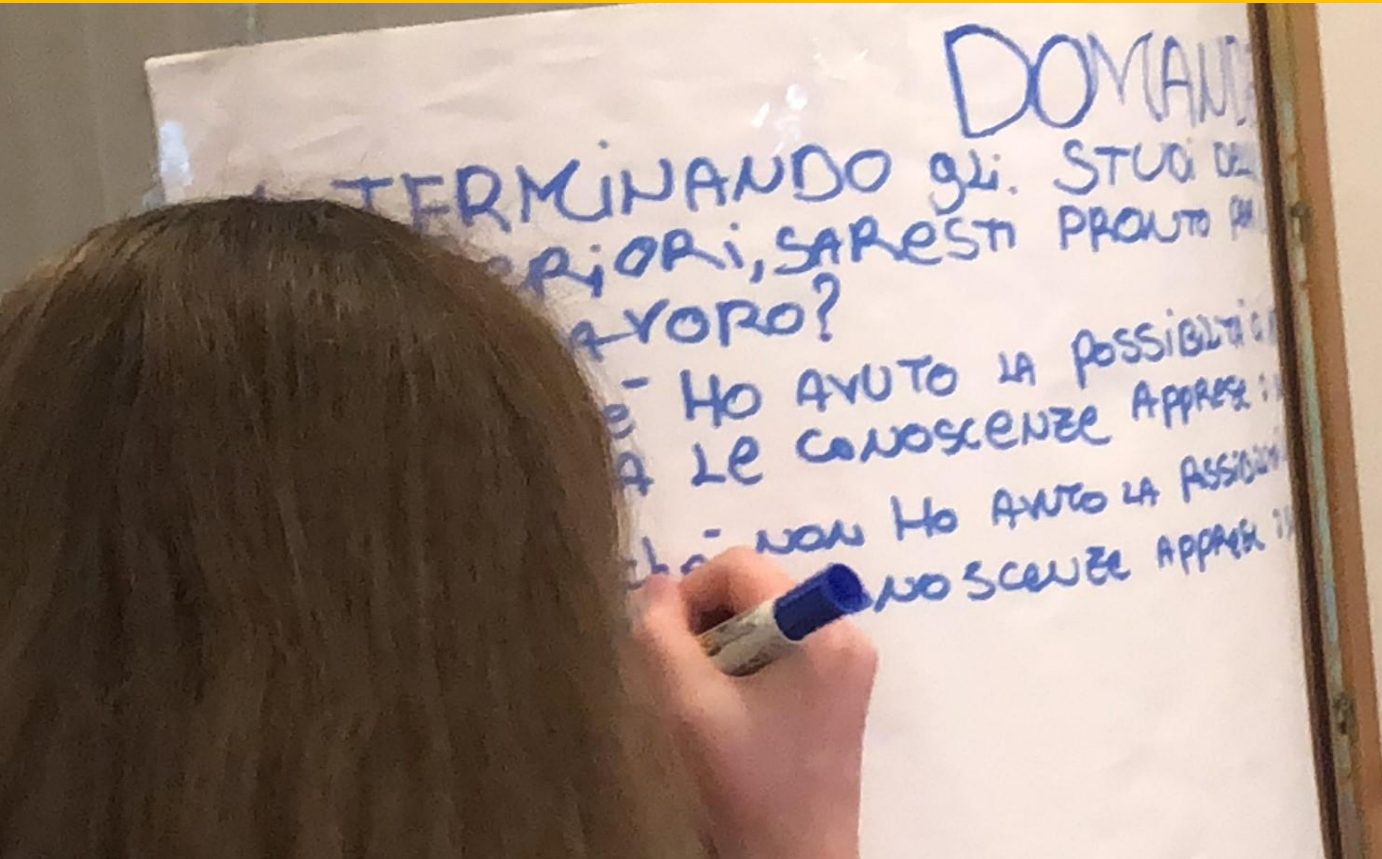 DOMAND
TERMINANDO gli. STUDi DEL
ERiORi, SARESTi PRONTO
AVORO?
HO AVUTO LA POSSiBiLiT
A LE CONOSCENZE APPRESE i
ché NON HO AVUTO LA POSSiBiLi
NOSCENZE APPRESE i